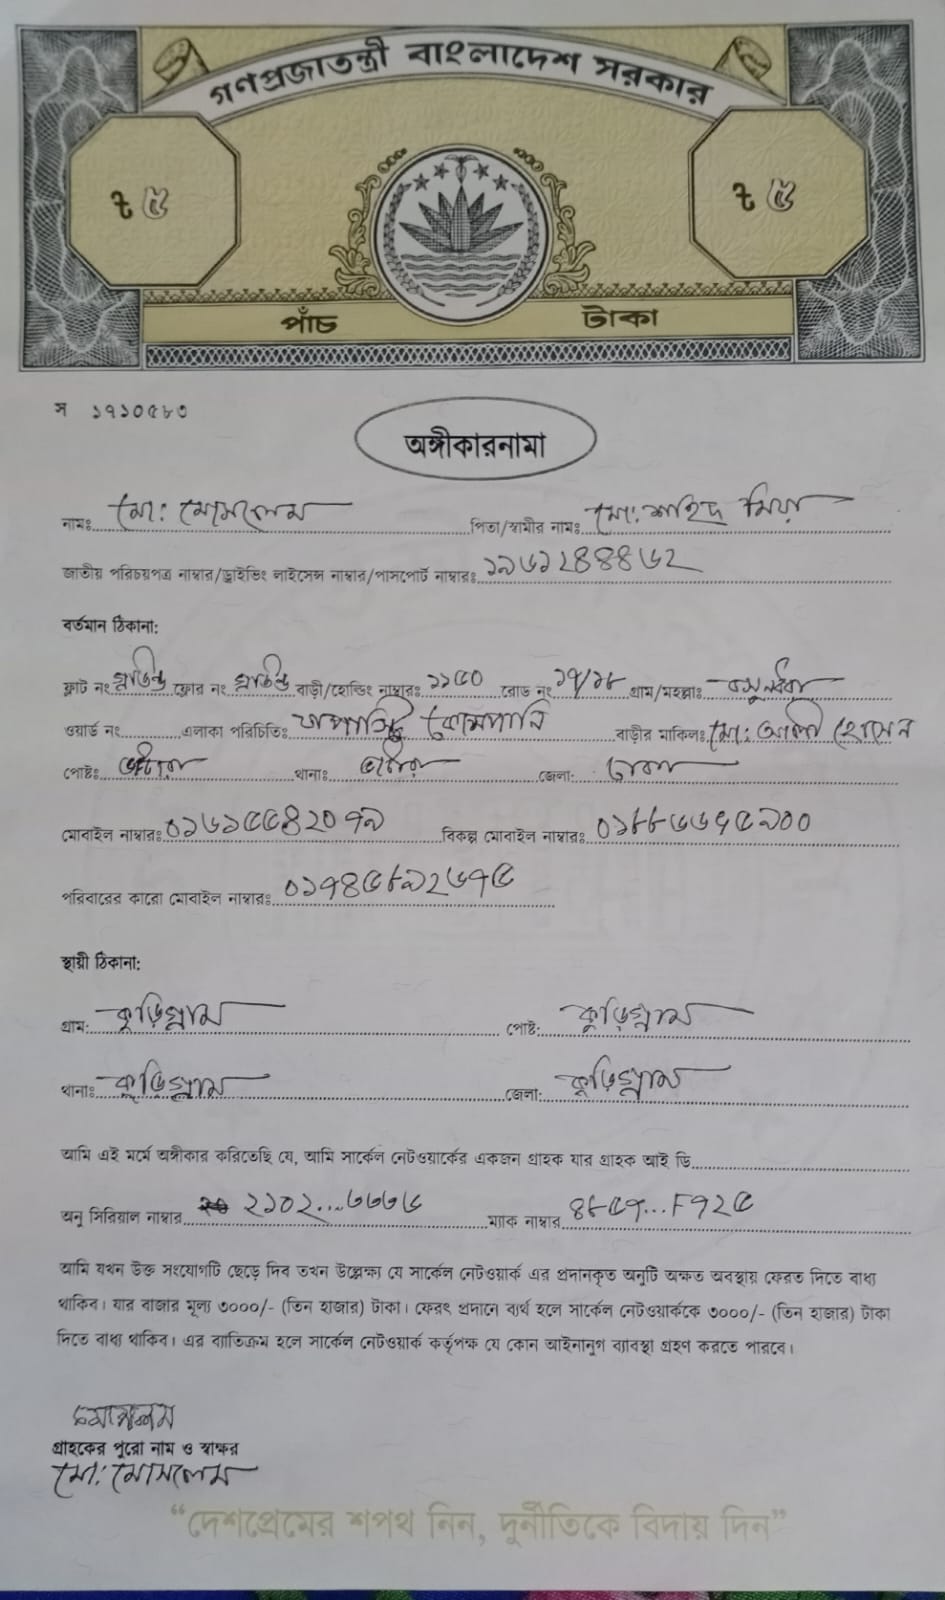 গণপ্রজাতন্ত্রী বাংলাদেশ সরকার
৳ ৫ ৳ ৫
পাঁচ টাকা
স ১৭১০৫৮৩
অঙ্গীকারনামা
নামঃ মো: মোসলেম পিতা/স্বামীর নামঃ মো: শাহিদ মিয়া
জাতীয় পরিচয়পত্র নাম্বার/ড্রাইভিং লাইসেন্স নাম্বার/পাসপোর্ট নাম্বারঃ ১৯৬১২৪৪৪৬২
বর্তমান ঠিকানা:
ফ্লাট নং গ্রাউন্ড ফ্লোর নং গ্রাউন্ড বাড়ী/হোল্ডিং নাম্বারঃ ১১৫০ রোড নং ১৭/১৮ গ্রাম/মহল্লাঃ বসুন্ধরা
ওয়ার্ড নং এলাকা পরিচিতিঃ কোম্পানি বাড়ীর মাকিলঃ মো: আলী হোসেন
পোষ্টঃ ভাটারা থানাঃ ভাটারা জেলা: ঢাকা
মোবাইল নাম্বারঃ ০১৬১৫৫৪২০৭৯ বিকল্প মোবাইল নাম্বারঃ
পরিবারের কারো মোবাইল নাম্বারঃ ০১৭৪৫৮৯২৬৭৫
স্থায়ী ঠিকানা:
গ্রাম: কুড়িগ্রাম পোষ্ট: কুড়িগ্রাম
থানাঃ কুড়িগ্রাম জেলা: কুড়িগ্রাম
আমি এই মর্মে অঙ্গীকার করিতেছি যে, আমি সার্কেল নেটওয়ার্কের একজন গ্রাহক যার গ্রাহক আই ডি
অনু সিরিয়াল নাম্বার ২১০২...৩৩৭৫ ম্যাক নাম্বার ৪৮৫৭...F৭২৫
আমি যখন উক্ত সংযোগটি ছেড়ে দিব তখন উল্লেক্ষ্য যে সার্কেল নেটওয়ার্ক এর প্রদানকৃত অনুটি অক্ষত অবস্থায় ফেরত দিতে বাধ্য
থাকিব। যার বাজার মূল্য ৩০০০/- (তিন হাজার) টাকা। ফেরৎ প্রদানে ব্যর্থ হলে সার্কেল নেটওয়ার্ককে ৩০০০/- (তিন হাজার) টাকা
দিতে বাধ্য থাকিব। এর ব্যতিক্রম হলে সার্কেল নেটওয়ার্ক কর্তৃপক্ষ যে কোন আইনানুগ ব্যাবস্থা গ্রহণ করতে পারবে।
মোসলেম
গ্রাহকের পুরো নাম ও স্বাক্ষর
মো: মোসলেম
“দেশপ্রেমের শপথ নিন, দুর্নীতিকে বিদায় দিন”